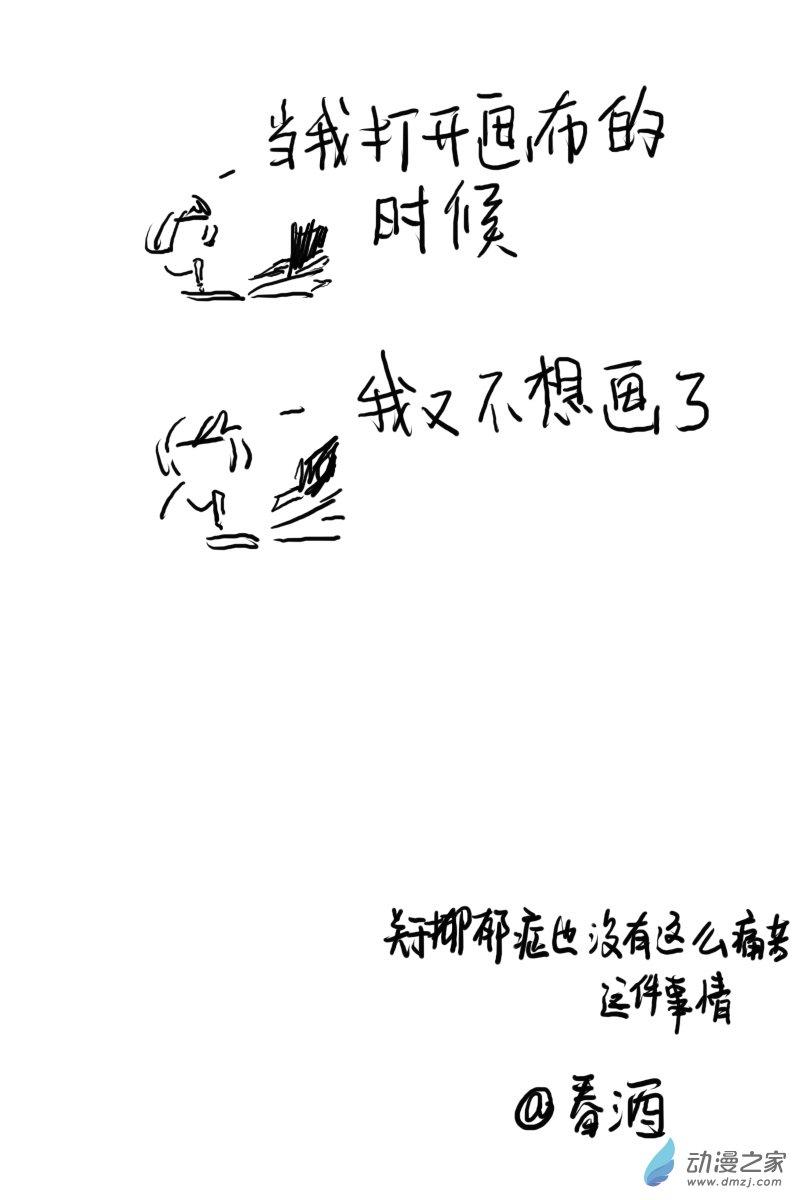 当我打开画布的
时候
我又不想画了
关于抑郁症也没有这么痛苦
这件事情
@春酒
动漫之家
www.dmzj.com